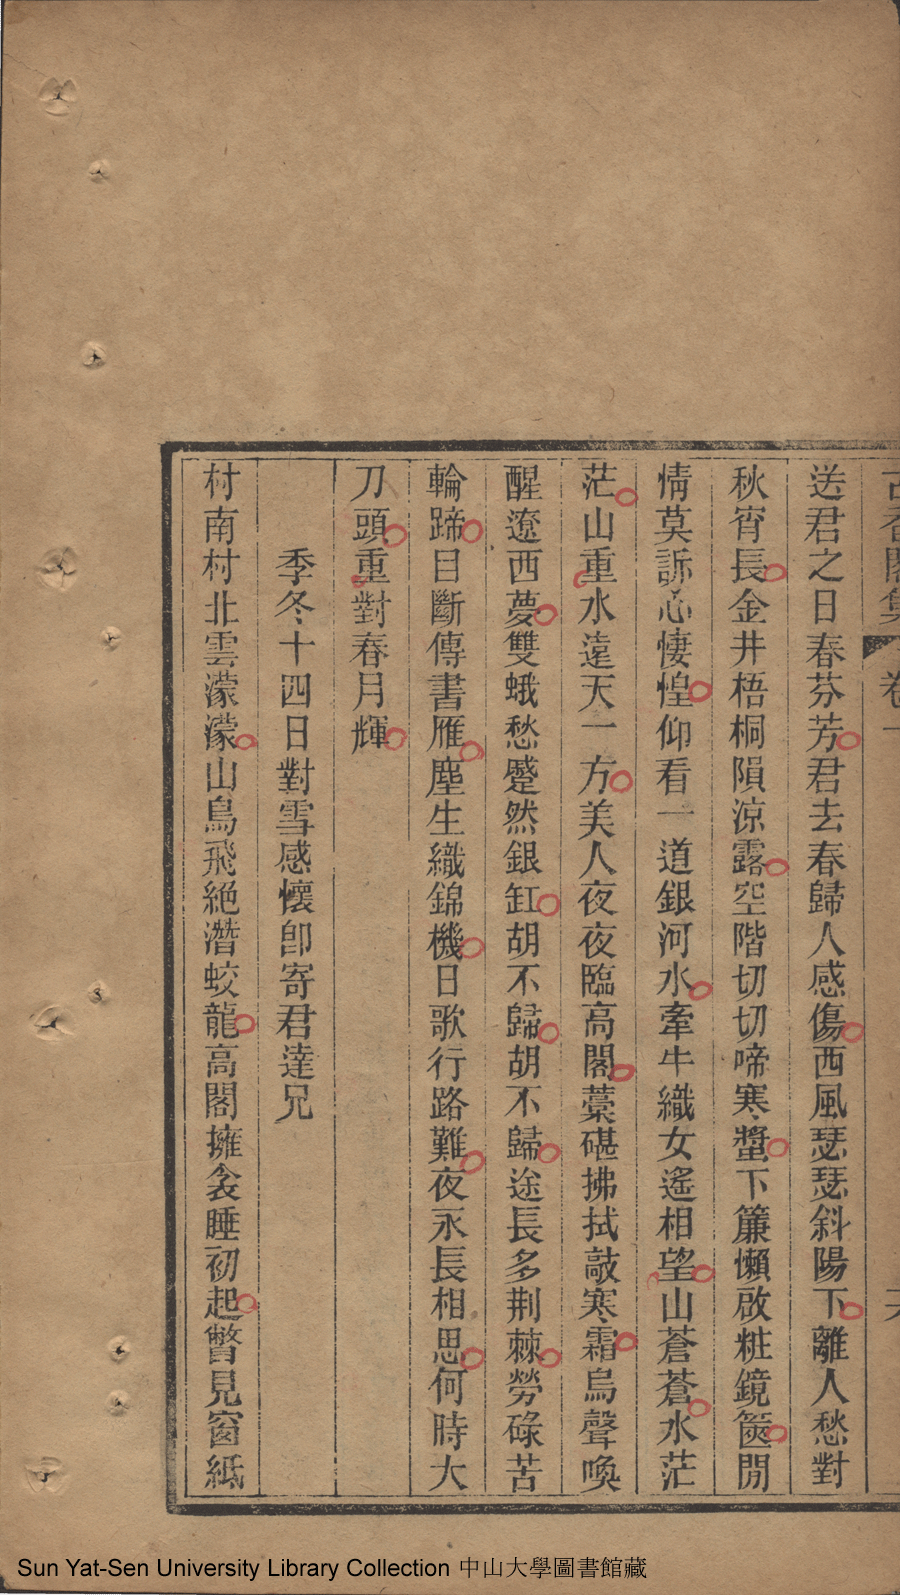 古香閣集 卷一 六
送君之日春芬芳君去春歸人感傷西風瑟瑟斜陽下離人愁對
秋宵長金井梧桐隕涼露空階切切啼寒螿下簾懶啟粧鏡篋閒
情莫訴心悽惶仰看一道銀河水牽牛織女遙相望山蒼蒼水茫
茫山重水遠天一方美人夜夜臨高閣藁碪拂拭敲寒霜烏聲喚
醒遼西夢雙蛾愁蹙然銀缸胡不歸胡不歸途長多荆棘勞碌苦
輪蹄目斷傳書雁塵生織錦機日歌行路難夜永長相思何時大
刀頭重對春月輝
季冬十四日對雪感懷卽寄君達兄
村南村北雲濛濛山鳥飛絕潛蛟龍高閣擁衾睡初起瞥見窗紙
Sun Yat-Sen University Library Collection 中山大學圖書館藏